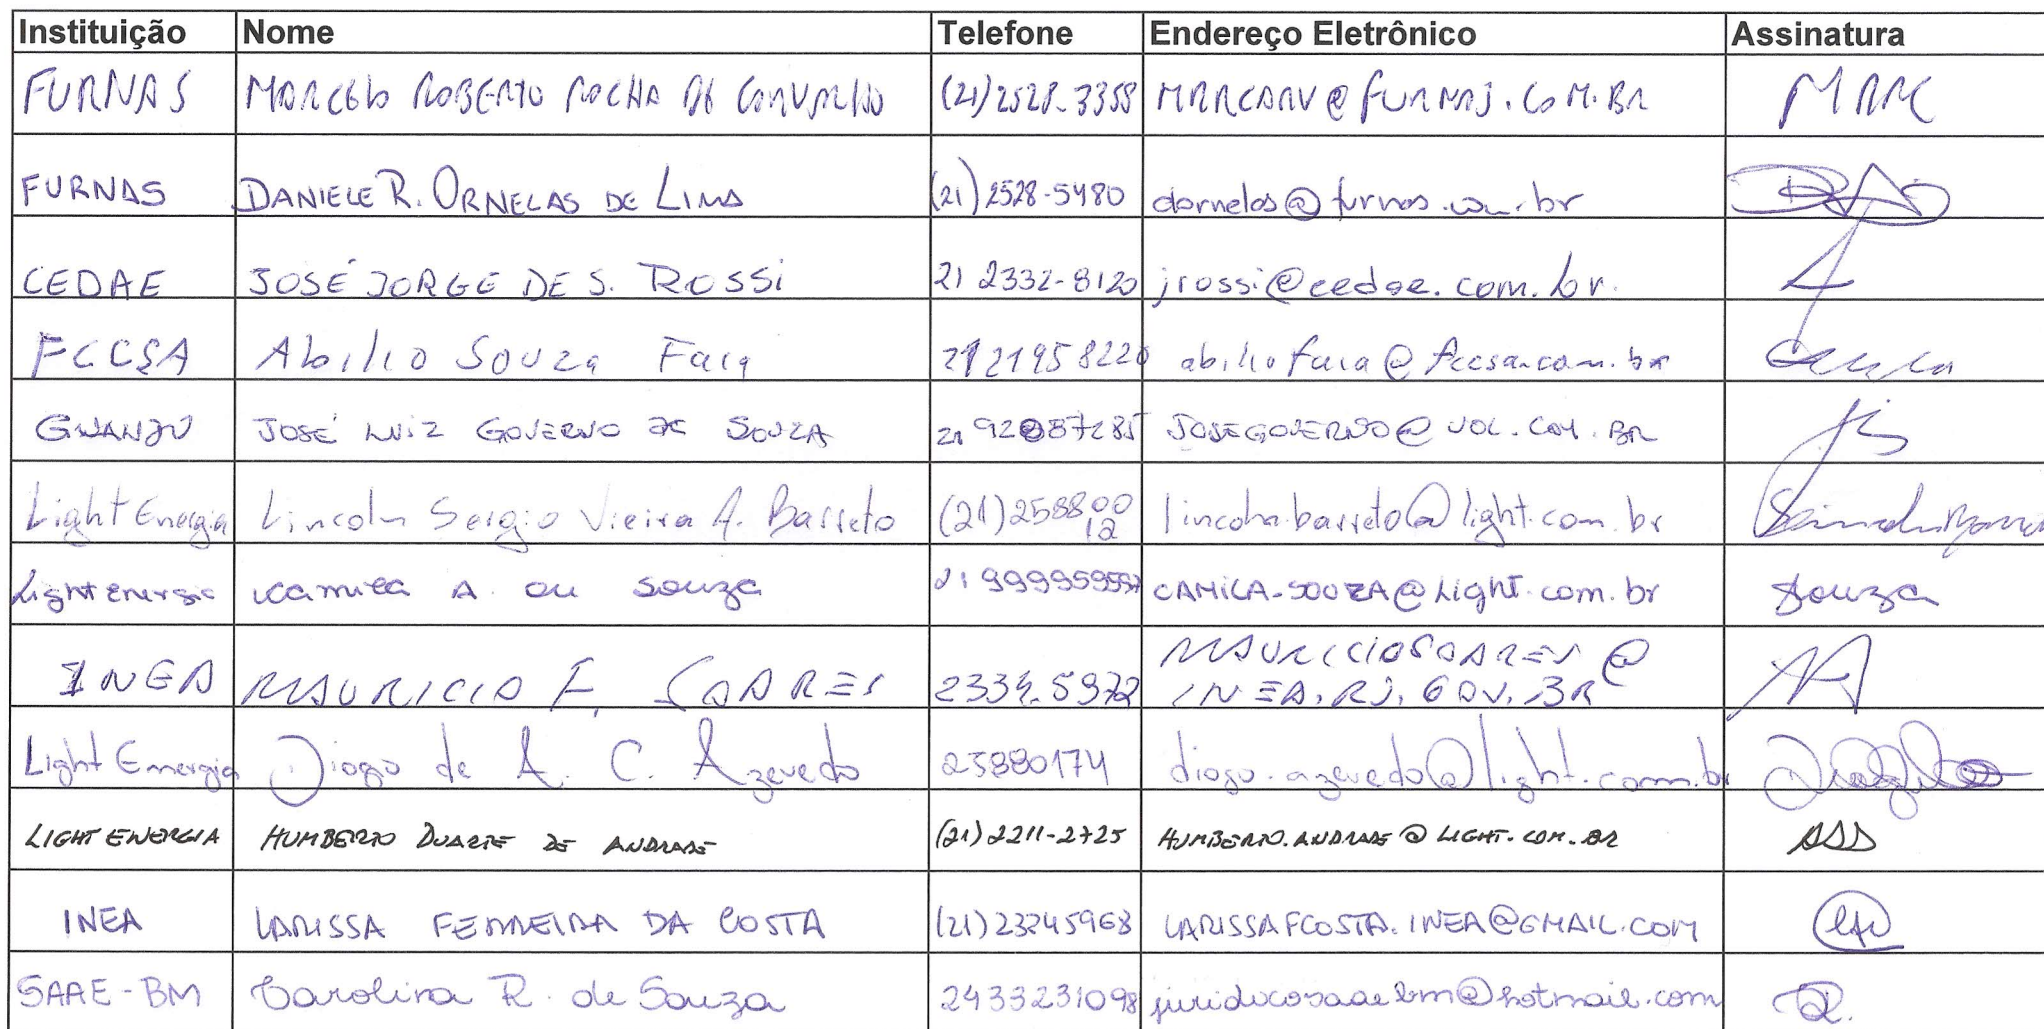 Instituição Nome Telefone Endereço Eletrônico Assinatura
FURNAS MARCELO ROBERTO ROCHA DE CARVALHO (21)2528-3358 MARCARV@FURNAS.COM.BR MRRC
FURNAS DANIELE R. ORNELAS DE LIMA (21)2528-5480 dornelas@furnas.com.br
CEDAE JOSÉ JORGE DE S. ROSSI 21 2332-8120 jrossi@cedae.com.br.
FCCSA Abilio Souza Faia 21 21958220 abiliofaia@fccsa.com.br
GUANDU JOSÉ LUIZ GOVERNO DE SOUZA 21 920857285 JOSEGOVERNO@UOL.COM.BR
Light Energia Lincoln Sergio Vieira A. Barreto (21)258800
12 lincoln.barreto@light.com.br
Light energia Camila A. de Souza 21 999959597 CAMILA.SOUZA@Light.com.br Souza
INEA MAURICIO F. SOARES 2334.5972 MAURICIOSOARES@
INEA.RJ.GOV.BR
Light Energia Diogo de A. C. Azevedo 25880174 diogo.azevedo@light.com.br
LIGHT ENERGIA HUMBERTO DUARTE DE ANDRADE (21)2211-2725 HUMBERTO.ANDRADE@LIGHT.COM.BR
INEA LARISSA FERREIRA DA COSTA (21)23345968 LARISSAFCOSTA.INEA@GMAIL.COM
SAAE-BM Carolina R. de Souza 2433231098 juridicosaaebm@hotmail.com